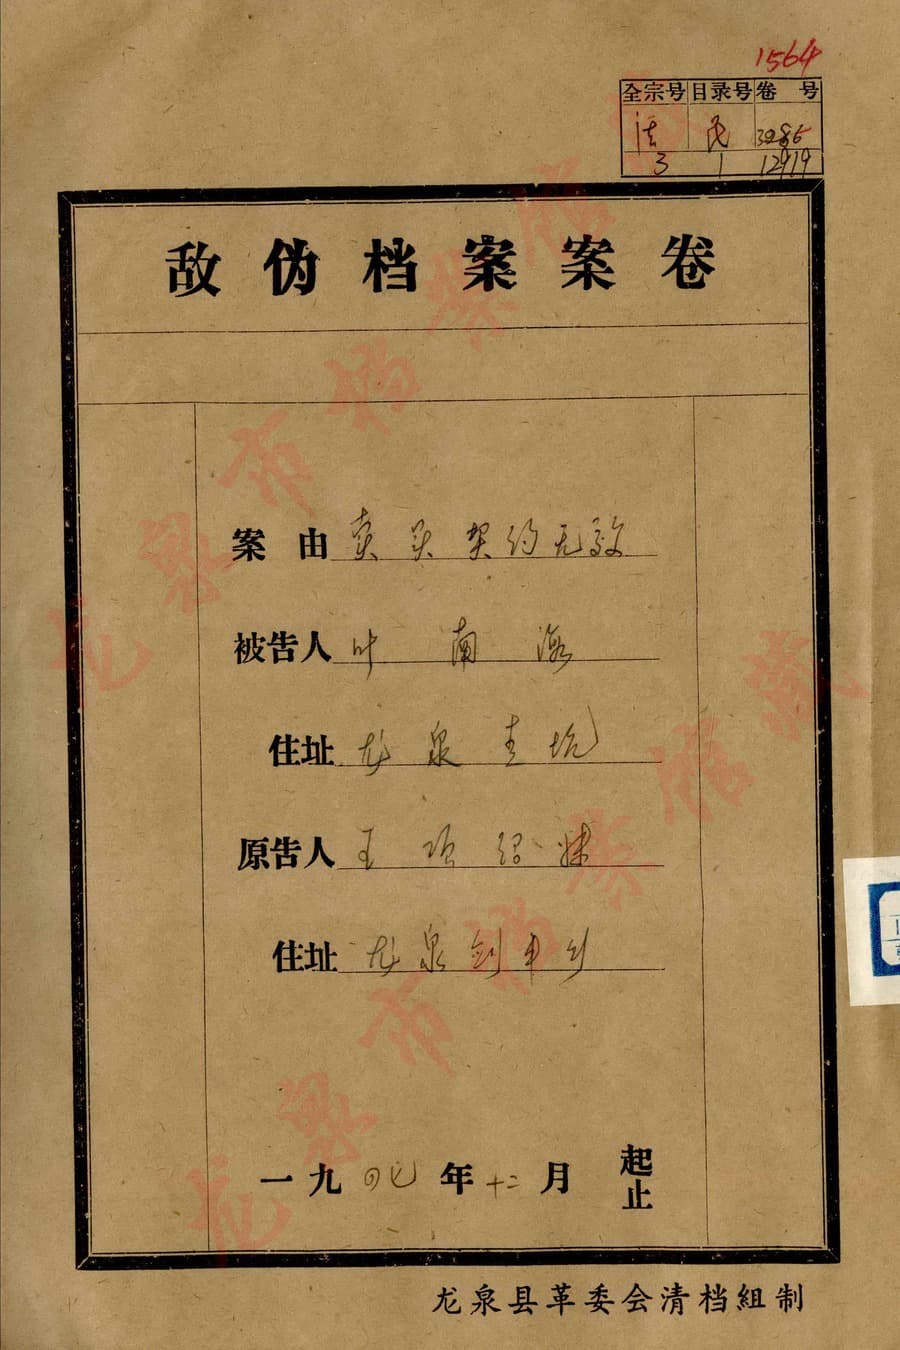 1564
全宗号 目录号 卷 号
法 民 3286
3 1 12919
敌伪档案案卷
案 由 卖买契约无效
被告人 叶南海
住址 龙泉
原告人 王项绍妹
住址 龙泉剑中乡
一九四七年十二月 起止
龙泉县革委会清档組制
龙泉市档案馆藏
龙泉市档案馆藏